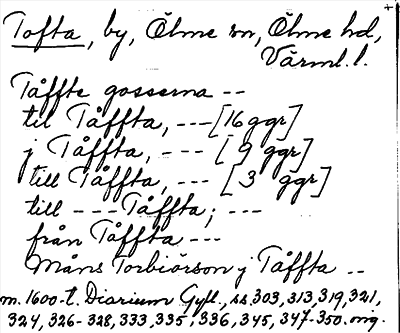 Tofta, by, Ölme sn, Ölme hd,
Värml. l.
Tåffte gosserna --
til Tåffta, --- [16 ggr]
j Tåffta, --- [9 ggr]
till Tåffta, --- [3 ggr]
till --- Tåffta; ---
från Tåffta ---
Måns Torbiörson j Tåffta --
m. 1600-t. Diarium Gyll., ss 303, 313, 319, 321,
324, 326-328, 333, 335, 336, 345, 347-350. orig.